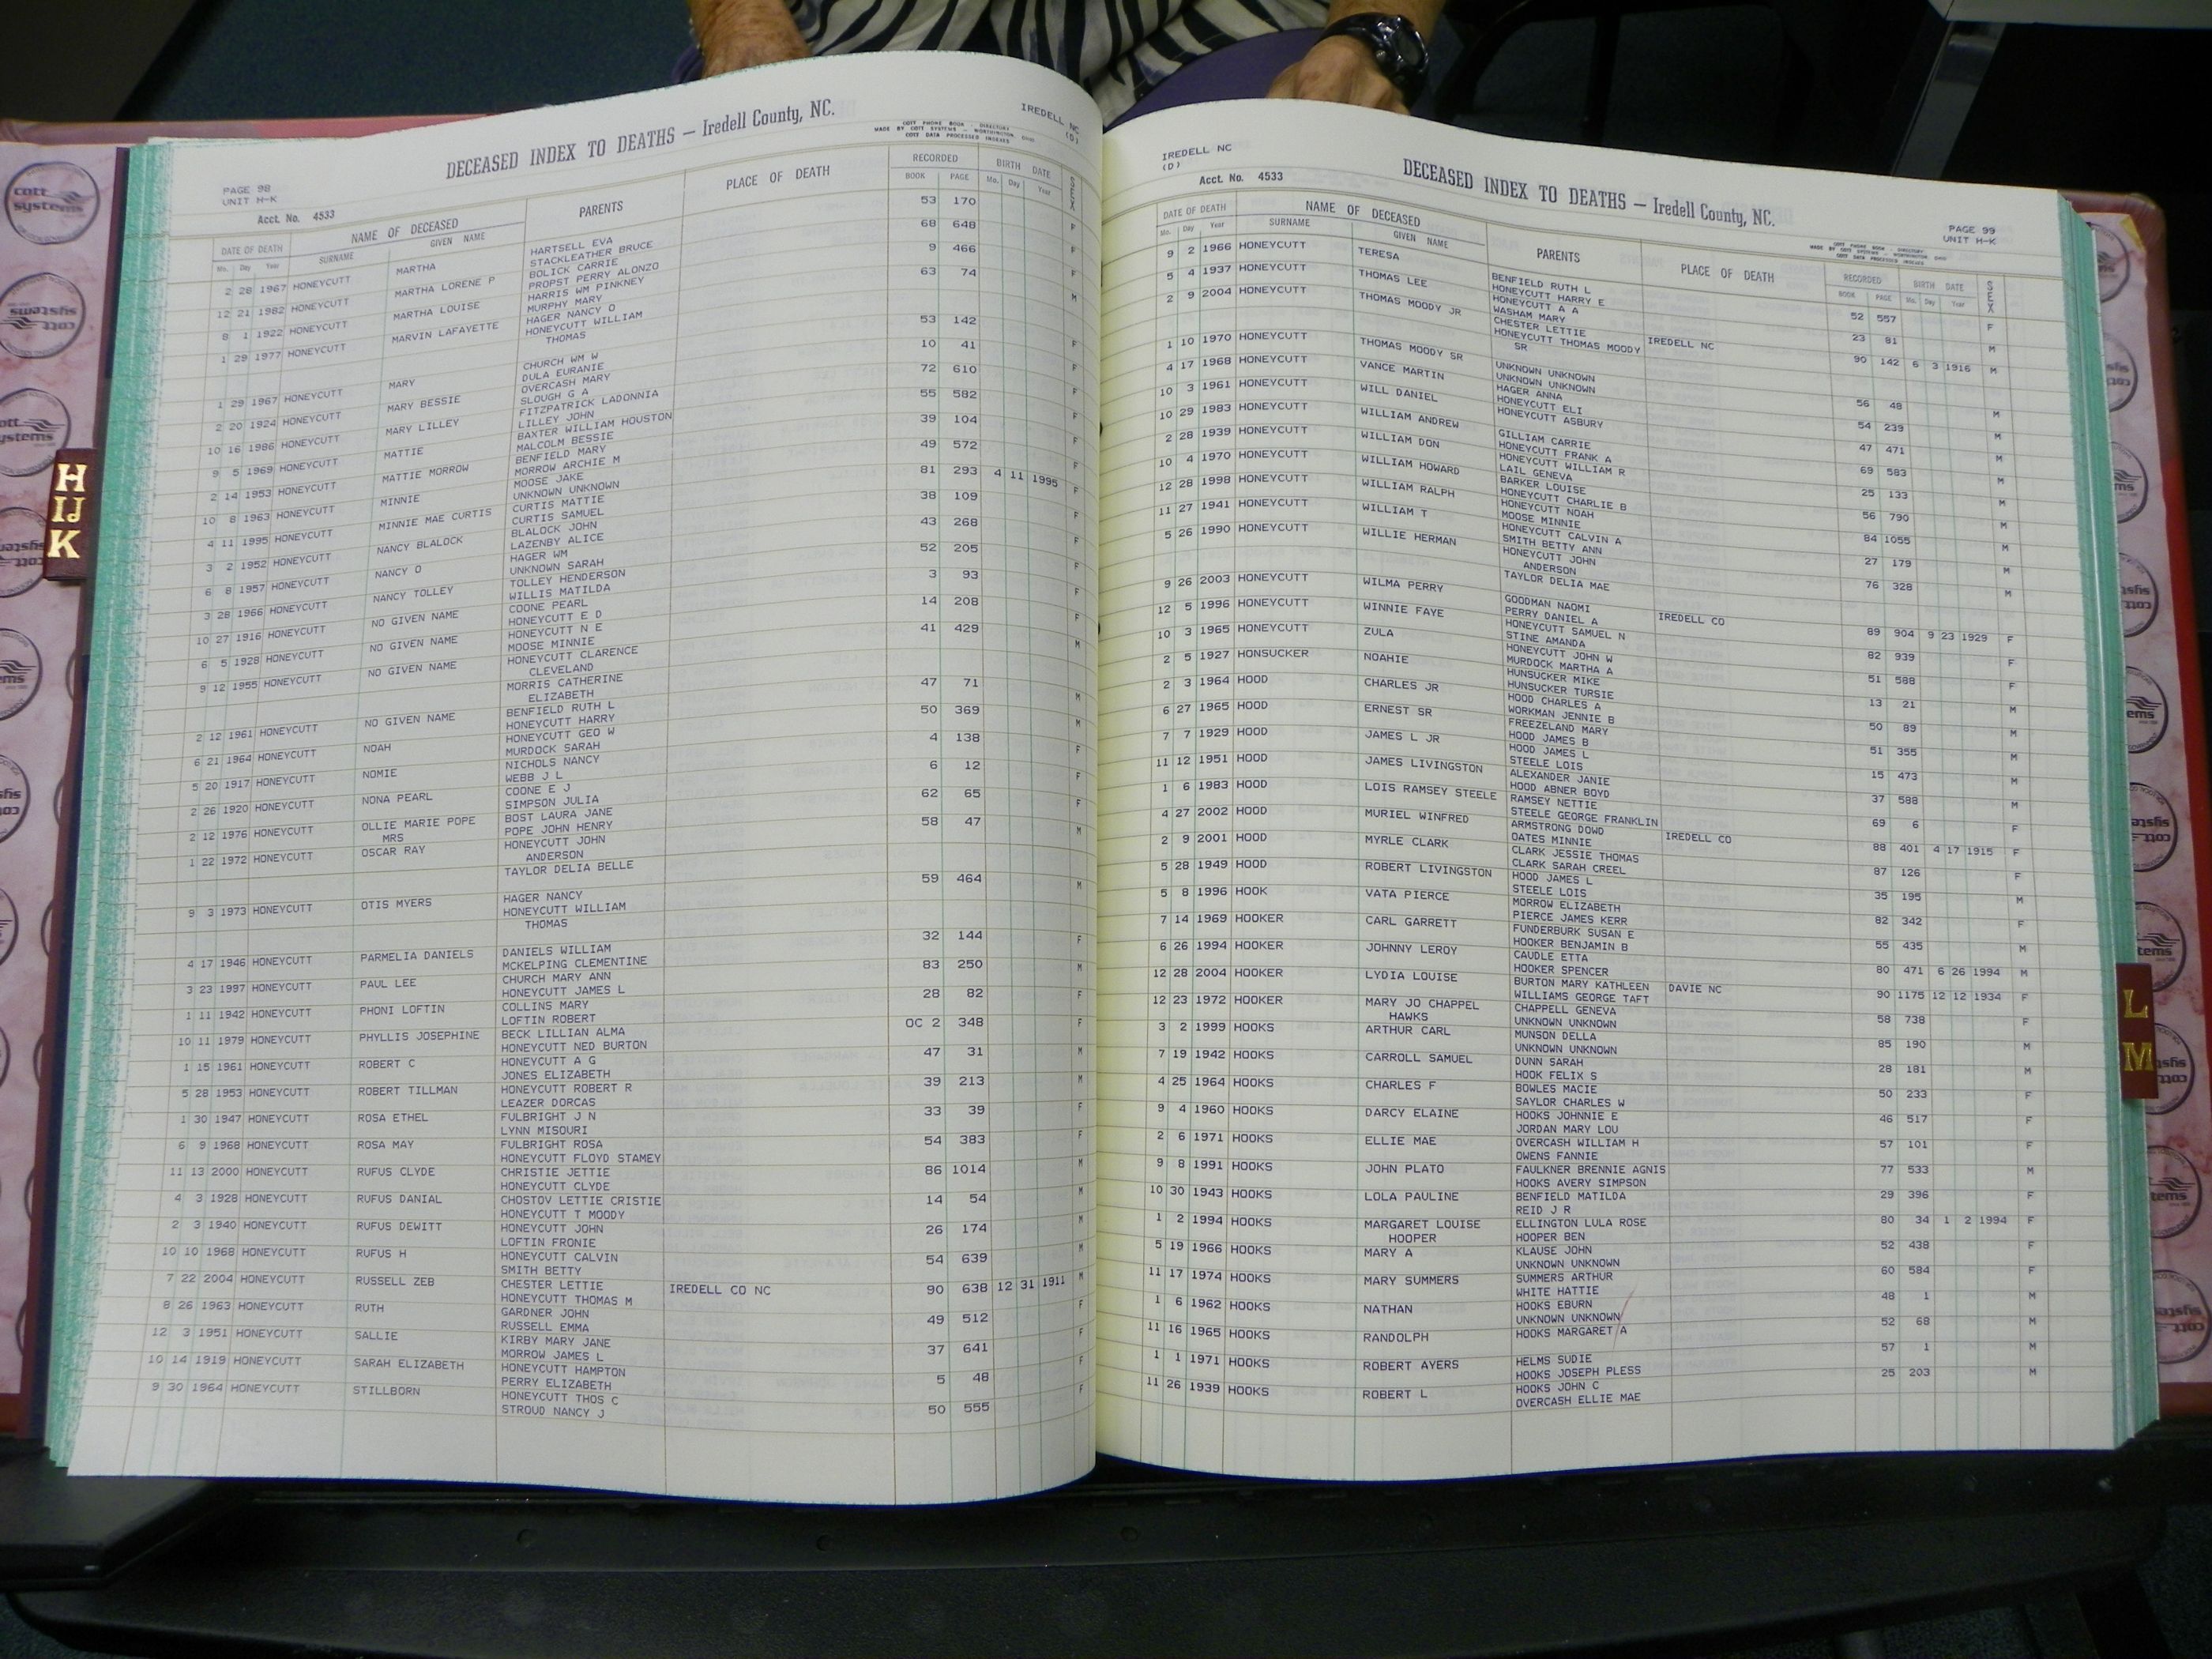 DECEASED INDEX TO DEATHS — Iredell County, NC.
IREDELL NC
(D)
COTT PHONE BOOK - DIRECTORY
MADE BY COTT SYSTEMS - WORTHINGTON, OHIO
COTT DATA PROCESSED INDEXES
PAGE 98
UNIT H-K
Acct. No. 4533
DATE OF DEATH NAME OF DECEASED PARENTS PLACE OF DEATH RECORDED BIRTH DATE SEX
Mo. Day Year SURNAME GIVEN NAME BOOK PAGE Mo. Day Year
2 28 1967 HONEYCUTT MARTHA HARTSELL EVA 53 170 F
STACKLEATHER BRUCE
12 21 1982 HONEYCUTT MARTHA LORENE P BOLICK CARRIE 68 648
PROPST PERRY ALONZO
8 1 1922 HONEYCUTT MARTHA LOUISE HARRIS WM PINKNEY 9 466 F
MURPHY MARY
1 29 1977 HONEYCUTT MARVIN LAFAYETTE HAGER NANCY O 63 74 M
HONEYCUTT WILLIAM
THOMAS
1 29 1967 HONEYCUTT MARY CHURCH WM W 53 142 F
DULA EURANIE
2 20 1924 HONEYCUTT MARY BESSIE OVERCASH MARY 10 41 F
SLOUGH G A
10 16 1986 HONEYCUTT MARY LILLEY FITZPATRICK LADONNIA 72 610
LILLEY JOHN
9 5 1969 HONEYCUTT MATTIE BAXTER WILLIAM HOUSTON 55 582 F
MALCOLM BESSIE
2 14 1953 HONEYCUTT MATTIE MORROW BENFIELD MARY 39 104 F
MORROW ARCHIE M
10 8 1963 HONEYCUTT MINNIE MOOSE JAKE 49 572 F
UNKNOWN UNKNOWN
4 11 1995 HONEYCUTT MINNIE MAE CURTIS CURTIS MATTIE 81 293 4 11 1995 F
CURTIS SAMUEL
3 2 1952 HONEYCUTT NANCY BLALOCK BLALOCK JOHN 38 109 F
LAZENBY ALICE
6 8 1957 HONEYCUTT NANCY O HAGER WM 43 268 F
UNKNOWN SARAH
3 28 1966 HONEYCUTT NANCY TOLLEY TOLLEY HENDERSON 52 205 F
WILLIS MATILDA
10 27 1916 HONEYCUTT NO GIVEN NAME COONE PEARL 3 93 F
HONEYCUTT E D
6 5 1928 HONEYCUTT NO GIVEN NAME HONEYCUTT N E 14 208 M
MOOSE MINNIE
9 12 1955 HONEYCUTT NO GIVEN NAME HONEYCUTT CLARENCE 41 429
CLEVELAND
MORRIS CATHERINE
ELIZABETH
2 12 1961 HONEYCUTT NO GIVEN NAME BENFIELD RUTH L 47 71 M
HONEYCUTT HARRY
6 21 1964 HONEYCUTT NOAH HONEYCUTT GEO W 50 369 M
MURDOCK SARAH
5 20 1917 HONEYCUTT NOMIE NICHOLS NANCY 4 138 F
WEBB J L
2 26 1920 HONEYCUTT NONA PEARL COONE E J 6 12 F
SIMPSON JULIA
2 12 1976 HONEYCUTT OLLIE MARIE POPE BOST LAURA JANE 62 65 F
MRS POPE JOHN HENRY
1 22 1972 HONEYCUTT OSCAR RAY HONEYCUTT JOHN 58 47 M
ANDERSON
TAYLOR DELIA BELLE
9 3 1973 HONEYCUTT OTIS MYERS HAGER NANCY 59 464 M
HONEYCUTT WILLIAM
THOMAS
4 17 1946 HONEYCUTT PARMELIA DANIELS DANIELS WILLIAM 32 144 F
MCKELPING CLEMENTINE
3 23 1997 HONEYCUTT PAUL LEE CHURCH MARY ANN 83 250 M
HONEYCUTT JAMES L
1 11 1942 HONEYCUTT PHONI LOFTIN COLLINS MARY 28 82 F
LOFTIN ROBERT
10 11 1979 HONEYCUTT PHYLLIS JOSEPHINE BECK LILLIAN ALMA OC 2 348 F
HONEYCUTT NED BURTON
1 15 1961 HONEYCUTT ROBERT C HONEYCUTT A G 47 31 M
JONES ELIZABETH
5 28 1953 HONEYCUTT ROBERT TILLMAN HONEYCUTT ROBERT R 39 213 M
LEAZER DORCAS
1 30 1947 HONEYCUTT ROSA ETHEL FULBRIGHT J N 33 39 F
LYNN MISOURI
6 9 1968 HONEYCUTT ROSA MAY FULBRIGHT ROSA 54 383 F
HONEYCUTT FLOYD STAMEY
11 13 2000 HONEYCUTT RUFUS CLYDE CHRISTIE JETTIE 86 1014 M
HONEYCUTT CLYDE
4 3 1928 HONEYCUTT RUFUS DANIAL CHOSTOV LETTIE CRISTIE 14 54 M
HONEYCUTT T MOODY
2 3 1940 HONEYCUTT RUFUS DEWITT HONEYCUTT JOHN 26 174 M
LOFTIN FRONIE
10 10 1968 HONEYCUTT RUFUS H HONEYCUTT CALVIN 54 639 M
SMITH BETTY
7 22 2004 HONEYCUTT RUSSELL ZEB CHESTER LETTIE IREDELL CO NC 90 638 12 31 1911 M
HONEYCUTT THOMAS M
8 26 1963 HONEYCUTT RUTH GARDNER JOHN 49 512 F
RUSSELL EMMA
12 3 1951 HONEYCUTT SALLIE KIRBY MARY JANE 37 641 F
MORROW JAMES L
10 14 1919 HONEYCUTT SARAH ELIZABETH HONEYCUTT HAMPTON 5 48 F
PERRY ELIZABETH
9 30 1964 HONEYCUTT STILLBORN HONEYCUTT THOS C 50 555 F
STROUD NANCY J
IREDELL NC
(D)
DECEASED INDEX TO DEATHS — Iredell County, NC.
Acct. No. 4533
PAGE 99
UNIT H-K
COTT PHONE BOOK - DIRECTORY
MADE BY COTT SYSTEMS - WORTHINGTON, OHIO
COTT DATA PROCESSED INDEXES
DATE OF DEATH NAME OF DECEASED PARENTS PLACE OF DEATH RECORDED BIRTH DATE SEX
Mo. Day Year SURNAME GIVEN NAME BOOK PAGE Mo. Day Year
9 2 1966 HONEYCUTT TERESA BENFIELD RUTH L 52 557 F
HONEYCUTT HARRY E
5 4 1937 HONEYCUTT THOMAS LEE HONEYCUTT A A 23 81 M
WASHAM MARY
2 9 2004 HONEYCUTT THOMAS MOODY JR CHESTER LETTIE IREDELL NC 90 142 6 3 1916 M
HONEYCUTT THOMAS MOODY
SR
1 10 1970 HONEYCUTT THOMAS MOODY SR UNKNOWN UNKNOWN 56 48 M
UNKNOWN UNKNOWN
4 17 1968 HONEYCUTT VANCE MARTIN HAGER ANNA 54 239 M
HONEYCUTT ELI
10 3 1961 HONEYCUTT WILL DANIEL HONEYCUTT ASBURY 47 471 M
10 29 1983 HONEYCUTT WILLIAM ANDREW GILLIAM CARRIE 69 583 M
HONEYCUTT FRANK A
2 28 1939 HONEYCUTT WILLIAM DON HONEYCUTT WILLIAM R 25 133 M
LAIL GENEVA
10 4 1970 HONEYCUTT WILLIAM HOWARD BARKER LOUISE 56 790 M
HONEYCUTT CHARLIE B
12 28 1998 HONEYCUTT WILLIAM RALPH HONEYCUTT NOAH 84 1055 M
MOOSE MINNIE
11 27 1941 HONEYCUTT WILLIAM T HONEYCUTT CALVIN A 27 179 M
SMITH BETTY ANN
5 26 1990 HONEYCUTT WILLIE HERMAN HONEYCUTT JOHN 76 328 M
ANDERSON
TAYLOR DELIA MAE
9 26 2003 HONEYCUTT WILMA PERRY GOODMAN NAOMI IREDELL CO 89 904 9 23 1929 F
PERRY DANIEL A
12 5 1996 HONEYCUTT WINNIE FAYE HONEYCUTT SAMUEL N 82 939 F
STINE AMANDA
10 3 1965 HONEYCUTT ZULA HONEYCUTT JOHN W 51 588 F
MURDOCK MARTHA A
2 5 1927 HONSUCKER NOAHIE HUNSUCKER MIKE 13 21 M
HUNSUCKER TURSIE
2 3 1964 HOOD CHARLES JR HOOD CHARLES A 50 89 M
WORKMAN JENNIE B
6 27 1965 HOOD ERNEST SR FREEZELAND MARY 51 355 M
HOOD JAMES B
7 7 1929 HOOD JAMES L JR HOOD JAMES L 15 473 M
STEELE LOIS
11 12 1951 HOOD JAMES LIVINGSTON ALEXANDER JANIE 37 588 M
HOOD ABNER BOYD
1 6 1983 HOOD LOIS RAMSEY STEELE RAMSEY NETTIE 69 6 F
STEELE GEORGE FRANKLIN
4 27 2002 HOOD MURIEL WINFRED ARMSTRONG DOWD IREDELL CO 88 401 4 17 1915 F
OATES MINNIE
2 9 2001 HOOD MYRLE CLARK CLARK JESSIE THOMAS 87 126 F
CLARK SARAH CREEL
5 28 1949 HOOD ROBERT LIVINGSTON HOOD JAMES L 35 195 M
STEELE LOIS
5 8 1996 HOOK VATA PIERCE MORROW ELIZABETH 82 342 F
PIERCE JAMES KERR
7 14 1969 HOOKER CARL GARRETT FUNDERBURK SUSAN E 55 435 M
HOOKER BENJAMIN B
6 26 1994 HOOKER JOHNNY LEROY CAUDLE ETTA 80 471 6 26 1994 M
HOOKER SPENCER
12 28 2004 HOOKER LYDIA LOUISE BURTON MARY KATHLEEN DAVIE NC 90 1175 12 12 1934 F
WILLIAMS GEORGE TAFT
12 23 1972 HOOKER MARY JO CHAPPEL CHAPPELL GENEVA 58 738 F
HAWKS UNKNOWN UNKNOWN
3 2 1999 HOOKS ARTHUR CARL MUNSON DELLA 85 190 M
UNKNOWN UNKNOWN
7 19 1942 HOOKS CARROLL SAMUEL DUNN SARAH 28 181 M
HOOK FELIX S
4 25 1964 HOOKS CHARLES F BOWLES MACIE 50 233 F
SAYLOR CHARLES W
9 4 1960 HOOKS DARCY ELAINE HOOKS JOHNNIE E 46 517 F
JORDAN MARY LOU
2 6 1971 HOOKS ELLIE MAE OVERCASH WILLIAM H 57 101 F
OWENS FANNIE
9 8 1991 HOOKS JOHN PLATO FAULKNER BRENNIE AGNIS 77 533 M
HOOKS AVERY SIMPSON
10 30 1943 HOOKS LOLA PAULINE BENFIELD MATILDA 29 396 F
REID J R
1 2 1994 HOOKS MARGARET LOUISE ELLINGTON LULA ROSE 80 34 1 2 1994 F
HOOPER HOOPER BEN
5 19 1966 HOOKS MARY A KLAUSE JOHN 52 438 F
UNKNOWN UNKNOWN
11 17 1974 HOOKS MARY SUMMERS SUMMERS ARTHUR 60 584 F
WHITE HATTIE
1 6 1962 HOOKS NATHAN HOOKS EBURN 48 1 M
UNKNOWN UNKNOWN
11 16 1965 HOOKS RANDOLPH HOOKS MARGARET A 52 68 M
1 1 1971 HOOKS ROBERT AYERS HELMS SUDIE 57 1 M
HOOKS JOSEPH PLESS
11 26 1939 HOOKS ROBERT L HOOKS JOHN C 25 203 M
OVERCASH ELLIE MAE
H
IJ
K
L
M
cott
systems